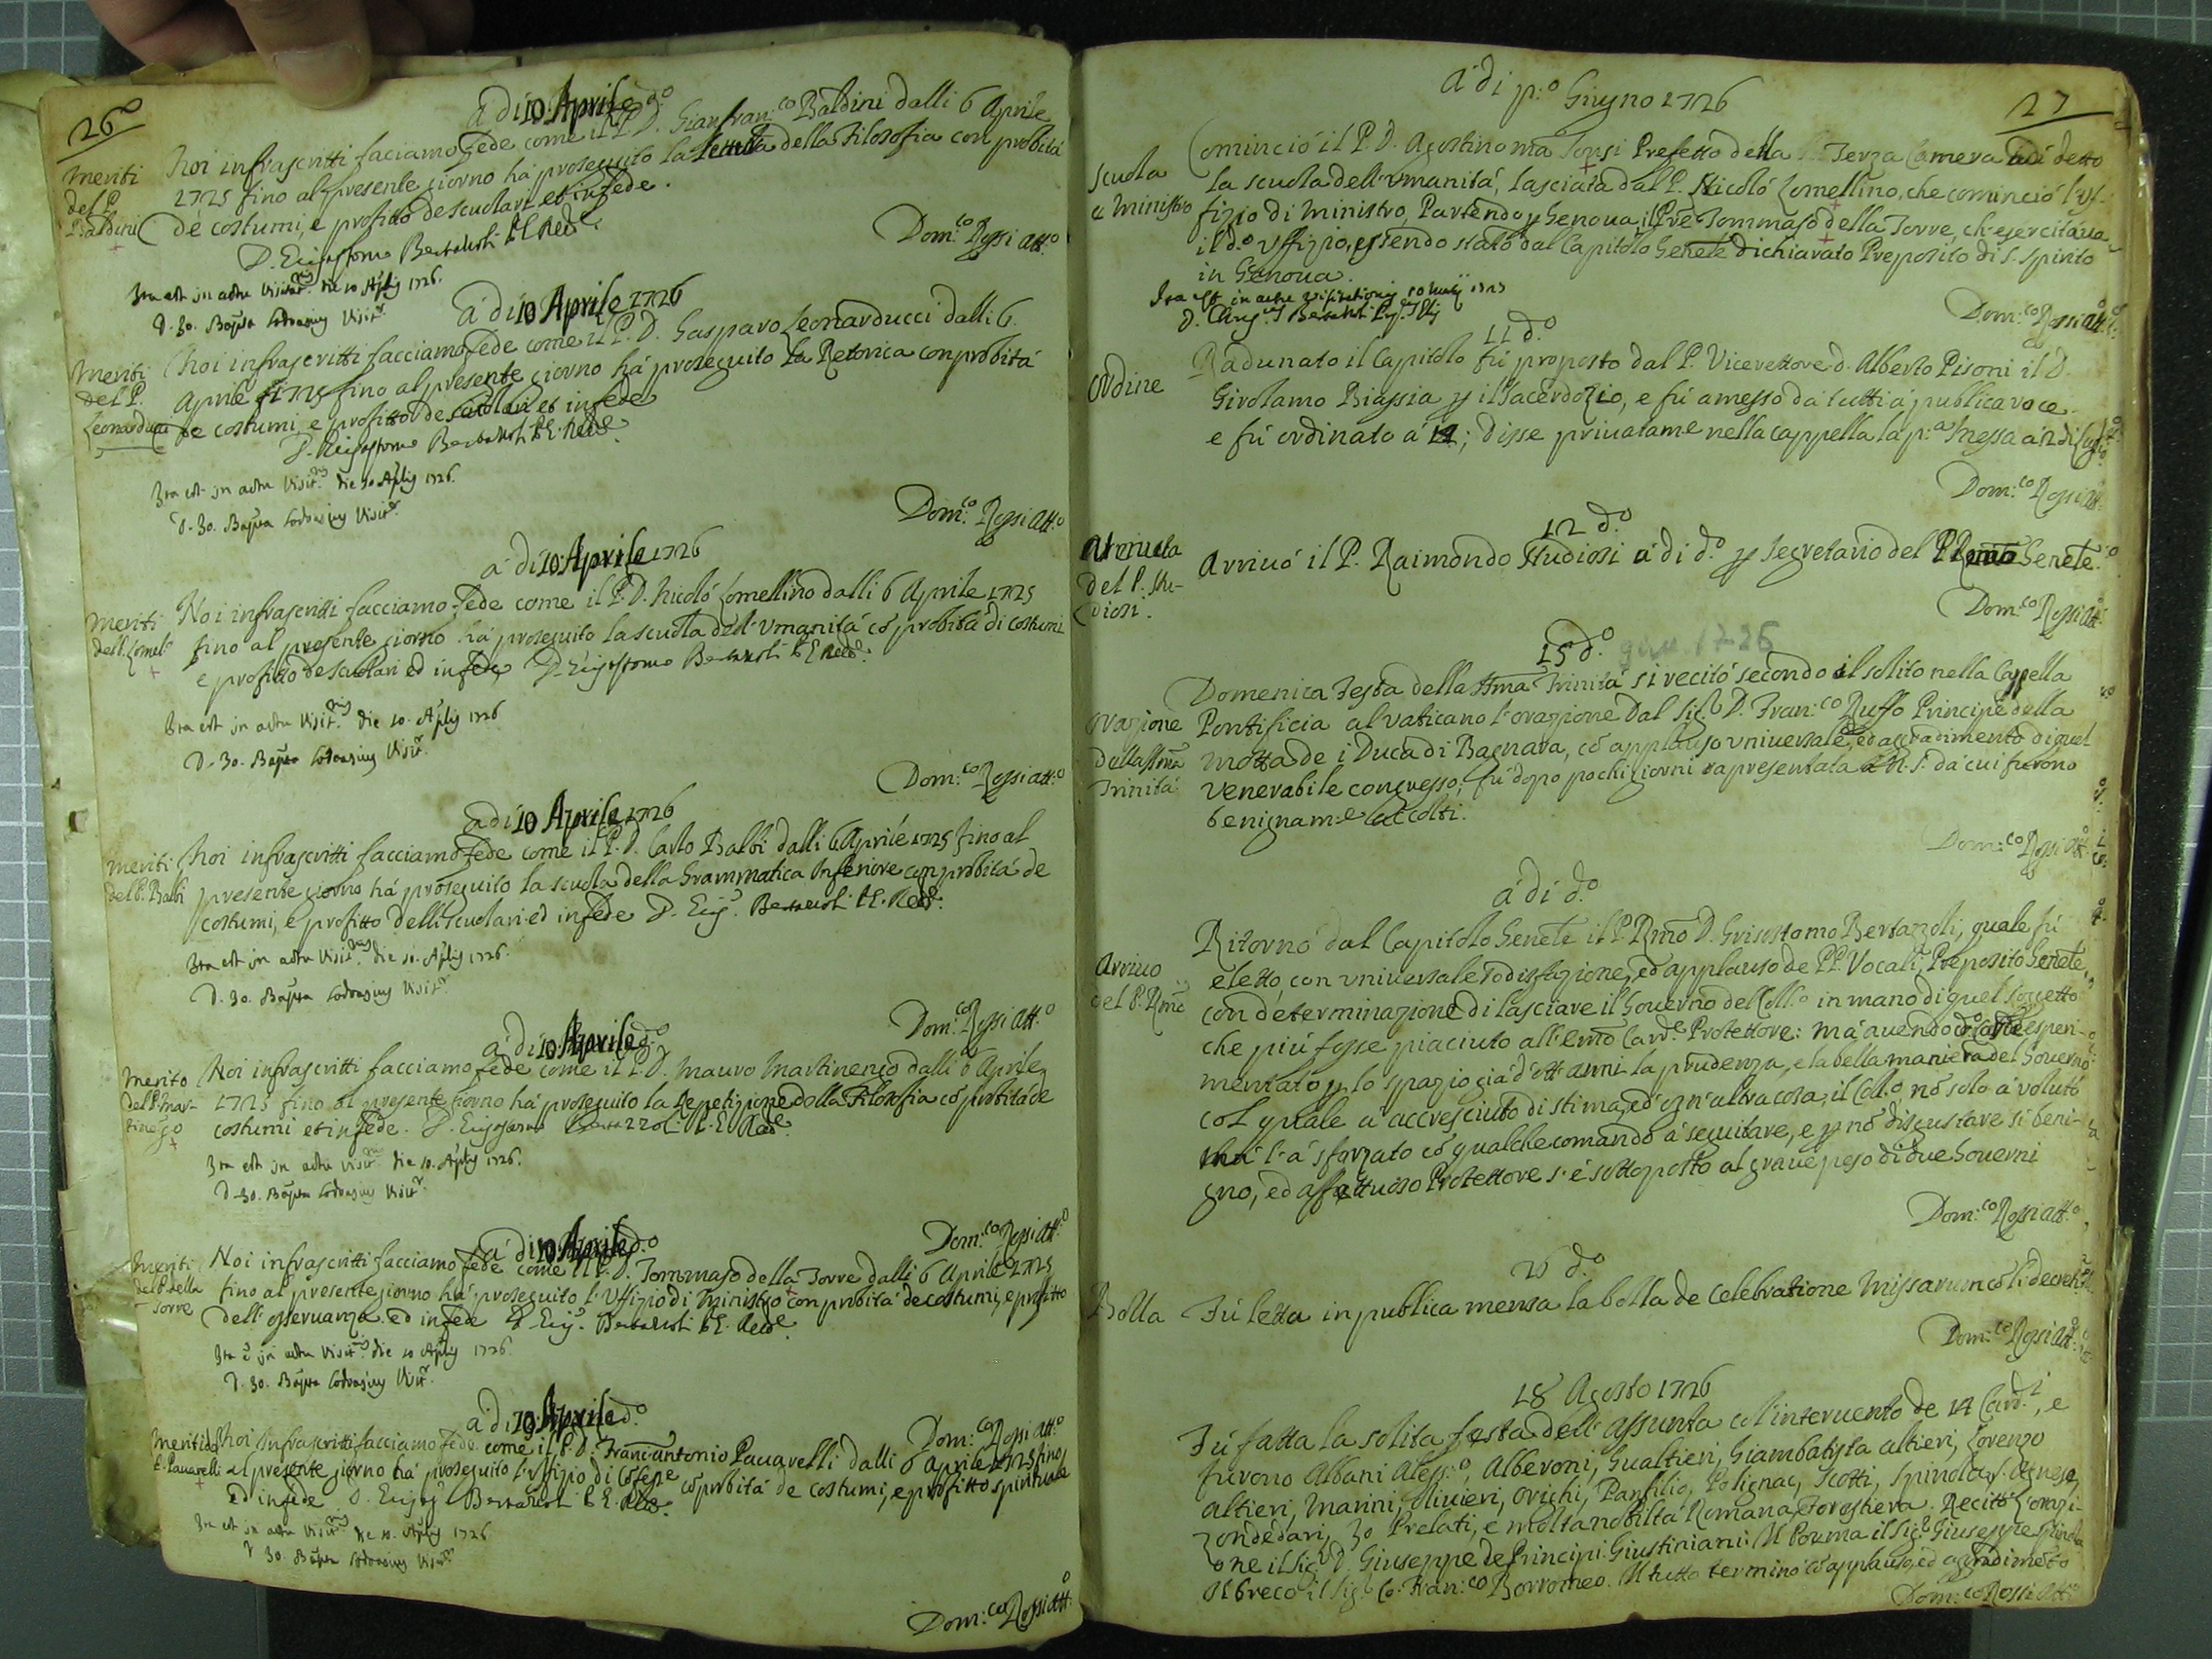 26
à dì 10 Aprile d.o
Meriti
del P.
Baldini
Noi infrascritti faciamo fede come il P. D. Gianfran.co Baldini dalli 6 Aprile
1725 fino al presente giorno há proseguito la lettura della Filosofia con probitá
dé costumi, e profitto de scuolari et in fede.
D. Crisostomo Bertazzoli
Ita est in actu Visit.nis die 10 Aplis 1726.
D. Io. Bapta Lodovasius Visit.r
Dom:co Rossi att.o
à dì 10 Aprile 1726
Meriti
del P.
Leonarducci
Noi infrascritti facciamo fede come il P. D. Gasparo Leonarducci dalli 6
Aprile 1725 fino al presente giorno há proseguito la Retorica con probitá
de costumi, e profitto de scuolari et in fede
D. Crisostomo Bertazzoli
Ita est in actu Visit.nis die 10 Aplis 1726.
D. Io. Bapta Lodovasius Visit.r
Dom:co Rossi att.o
à dì 10 Aprile 1726
Meriti
del P. Lomel.
Noi infrascritti facciamo fede come il P. D. Nicoló Lomellino dalli 6 Aprile 1725
fino al presente giorno há proseguito la scuola dell'Vmanitá có probitá di costumi
e profitto de scuolari ed in fede D. Crisostomo Bertazzoli
Ita est in actu Visit.nis die 10 Aplis 1726
D. Io. Bapta Lodovasius Visit.r
Dom:co Rossi att.o
à dì 10 Aprile 1726
Meriti
del P. Balbi
Noi infrascritti facciamo fede come il P. D. Carlo Balbi dalli 6 Aprile 1725 fino al
presente giorno há proseguito la scuola della Grammatica Inferiore con probitá de
costumi, e profitto delli scuolari ed in fede D. Bertazzoli
Ita est in actu Visit.nis die 10. Aplis 1726.
D. Io. Bapta Lodovasius Visit.r
Dom:co Rossi att.o
à dì 10 Aprile d.o
Merito
del P. Mar-
tinego
Noi infrascritti facciamo fede come il P. D. Mauro Martinengo dalli 6 Aprile
1725 fino al presente giorno há proseguito la Repetizione della Filosofia có probitá de
costumi et in fede. D. Bertazzoli
Ita est in actu Visit.nis die 10. Aplis 1726.
D. Io. Bapta Lodovasius Visit.r
Dom:co Rossi att.o
à dì 10 Aprile d.o
Meriti
del P. della
Torre
Noi infrascritti facciamo fede come il P. D. Tommaso della Torre dalli 6 Aprile 1725
fino al presente giorno há proseguito l'Vffizio di Ministro con probitá de costumi, e profitto
dell'osservanza ed in fede D. Bertazzoli
Ita e in actu Visit.nis die 10 Aplis 1726.
D. Io. Bapta Lodovasius Visit.r
à dì 10 Aprile d.o
Dom:co Rossi att.o
Meriti del
P. Pavarelli
Noi infrascritti facciamo fede come il P. D. Franc.Antonio Pavarelli dalli 6 Aprile 1725 fino
al presente giorno há proseguito l'Vffizio di có probitá de costumi, e profitto spirituale
ed in fede D. Bertazzoli
Ita est in actu Visit.nis die 10. Aplis 1726
D. Io. Bapta Lodovasius Visit.r
Dom:co Rossi att.o
27
à dì p:o Giugno 1726
Scuola
e Ministro
Cominció il P. D. Agostino Ma Prefetto della Terza Camera detto
la scuola dell'Vmanitá, lasciata dal P. Nicoló Lomellino, che cominció l'Vf-
fizio di Ministro, Partendo p Genova il Pre Tommaso della Torre, ch'esercitava
il d.o Vffizio, essendo stato dal Capitolo Genele dichiarato Preposito di S. Spirito
in Genova.
Ita est in actu visitationis
D. Bertazzoli
Dom:co Rossi att.o
11 d.o
Ordine
Radunato il Capitolo fú proposto dal P. Vicerettore d. Alberto Pisoni il D.
Girolamo Biassia p il sacerdozio, e fú amesso da tutti á publica voce
e fú ordinato á ; disse privatam.e nella cappella la p:a Messa
Dom:co Rossi att.o
12 d.o
Arrivata
del P. Stu-
diosi.
Arrivó il P. Raimondo Studiosi á dì d.o p Segretario del P. Rmo Genele.
Dom:co Rossi att.o
15 d.o giu. 1726
Orazione
della SSma
Trinitá
Domenica Festa della SSma Trinitá si recitó secondo il solito nella Cappella
Pontificia al Vaticano l'orazione dal Sig.r D. Fran:co Ruffo Principe della
Motta de i Duca di Bagnara, có applauso vniversale, ed aggradimento di quel
venerabile congresso; fú dopo pochi giorni rapresentata á N. S. da cui furono
benignam:e accolti.
Dom:co Rossi att.o
à dì d.o
Arrivo
del P. Rmo
Ritornó dal Capitolo Genele il P. Rmo D. Grisostomo Bertazoli, quale fú
eletto, con vniversale sodisfazione, ed applauso de PP. Vocali, Preposito Genele,
con determinazione di lasciare il Governo del Coll.o in mano di quel soggetto
che piú fosse piaciuto all'Emo Card.e Protettore: má avendo esperi-
mentato p lo spazio giá d'ott'anni la prudenza, e la bella maniera del Governo
col quale á accresciuto di stima, ed ogn'altra cosa, il Coll.o, nó solo á voluto
má l'á sforzato có qualche comando á seguitare, e p nó disgustare sí beni-
gno, ed affettuoso Protettore s'é sottoposto al grave peso di due Governi
Dom:co Rossi att.o
26 d.o
Bolla
Fú letta in publica mensa la bolla de Celebratione Missarum có li decreti
Dom:co Rossi att.o
18 Agosto 1726
Fú fatta la solita festa dell'Assunta col'intervento de 14 Card.i, e
furono Albani Aless:o, Alberoni, Gualtieri, Giambatista Altieri, Lorenzo
Altieri, Marini, Olivieri, Orighi, Panfilio, Polignac, Scotti, Spinola S. Agnese,
Zondedari, 30 Prelati, e molta nobiltá Romana, Foresthera. Recittó l'orazi-
one il Sig.r D. Giuseppe de Principi Giustiniani: Il Poema il Sig.r Giuseppe Spinola
Il Greco il Sig.r Co: Fran:co Borromeo. Il tutto terminó có applauso, ed agradimeto
Dom:co Rossi att.o